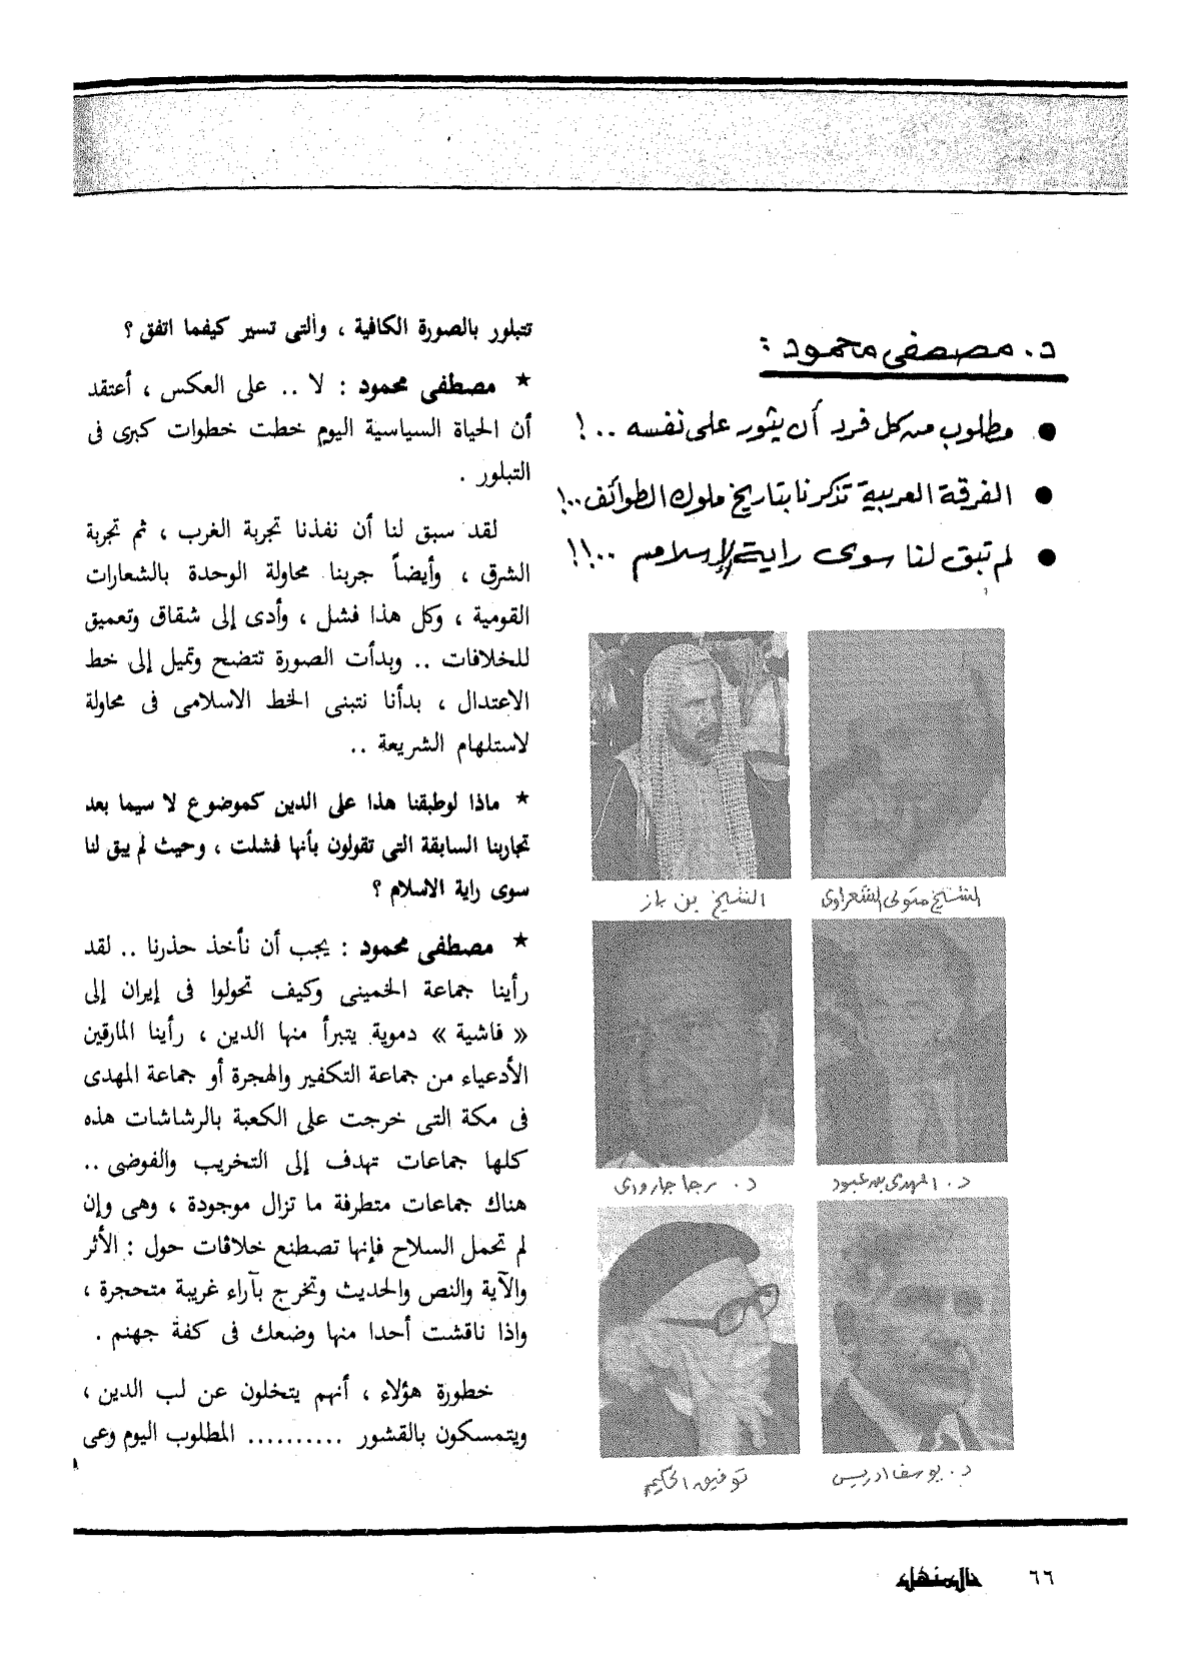 د. مصطفى محمود :
● مطلوب من كل فرد أن يثور على نفسه ..!
● الفرقة العربية تذكرنا بتاريخ ملوك الطوائف ..!
● لم تبق لنا سوى راية الإسلام ..!!
الشيخ متولى الشعراوى
الشيخ بن باز
د. المهدى بن عبود
د. رجا جارودى
د. يوسف ادريس
توفيق الحكيم
تتبلور بالصورة الكافية ، والتى تسير كيفما اتفق ؟
★ مصطفى محمود : لا .. على العكس ، أعتقد
أن الحياة السياسية اليوم خطت خطوات كبرى فى
التبلور .
لقد سبق لنا أن نفذنا تجربة الغرب ، ثم تجربة
الشرق ، وأيضاً جربنا محاولة الوحدة بالشعارات
القومية ، وكل هذا فشل ، وأدى إلى شقاق وتعميق
للخلافات .. وبدأت الصورة تتضح وتميل إلى خط
الاعتدال ، بدأنا نتبنى الخط الاسلامى فى محاولة
لاستلهام الشريعة ..
★ ماذا لوطبقنا هذا على الدين كموضوع لا سيما بعد
تجاربنا السابقة التى تقولون بأنها فشلت ، وحيث لم يبق لنا
سوى راية الاسلام ؟
★ مصطفى محمود : يجب أن نأخذ حذرنا .. لقد
رأينا جماعة الخمينى وكيف تحولوا فى إيران إلى
« فاشية » دموية يتبرأ منها الدين ، رأينا المارقين
الأدعياء من جماعة التكفير والهجرة أو جماعة المهدى
فى مكة التى خرجت على الكعبة بالرشاشات هذه
كلها جماعات تهدف إلى التخريب والفوضى ..
هناك جماعات متطرفة ما تزال موجودة ، وهى وإن
لم تحمل السلاح فإنها تصطنع خلافات حول : الأثر
والآية والنص والحديث وتخرج بآراء غريبة متحجرة ،
واذا ناقشت أحدا منها وضعك فى كفة جهنم .
خطورة هؤلاء ، أنهم يتخلون عن لب الدين ،
ويتمسكون بالقشور .......... المطلوب اليوم وعى
٦٦ المنهل